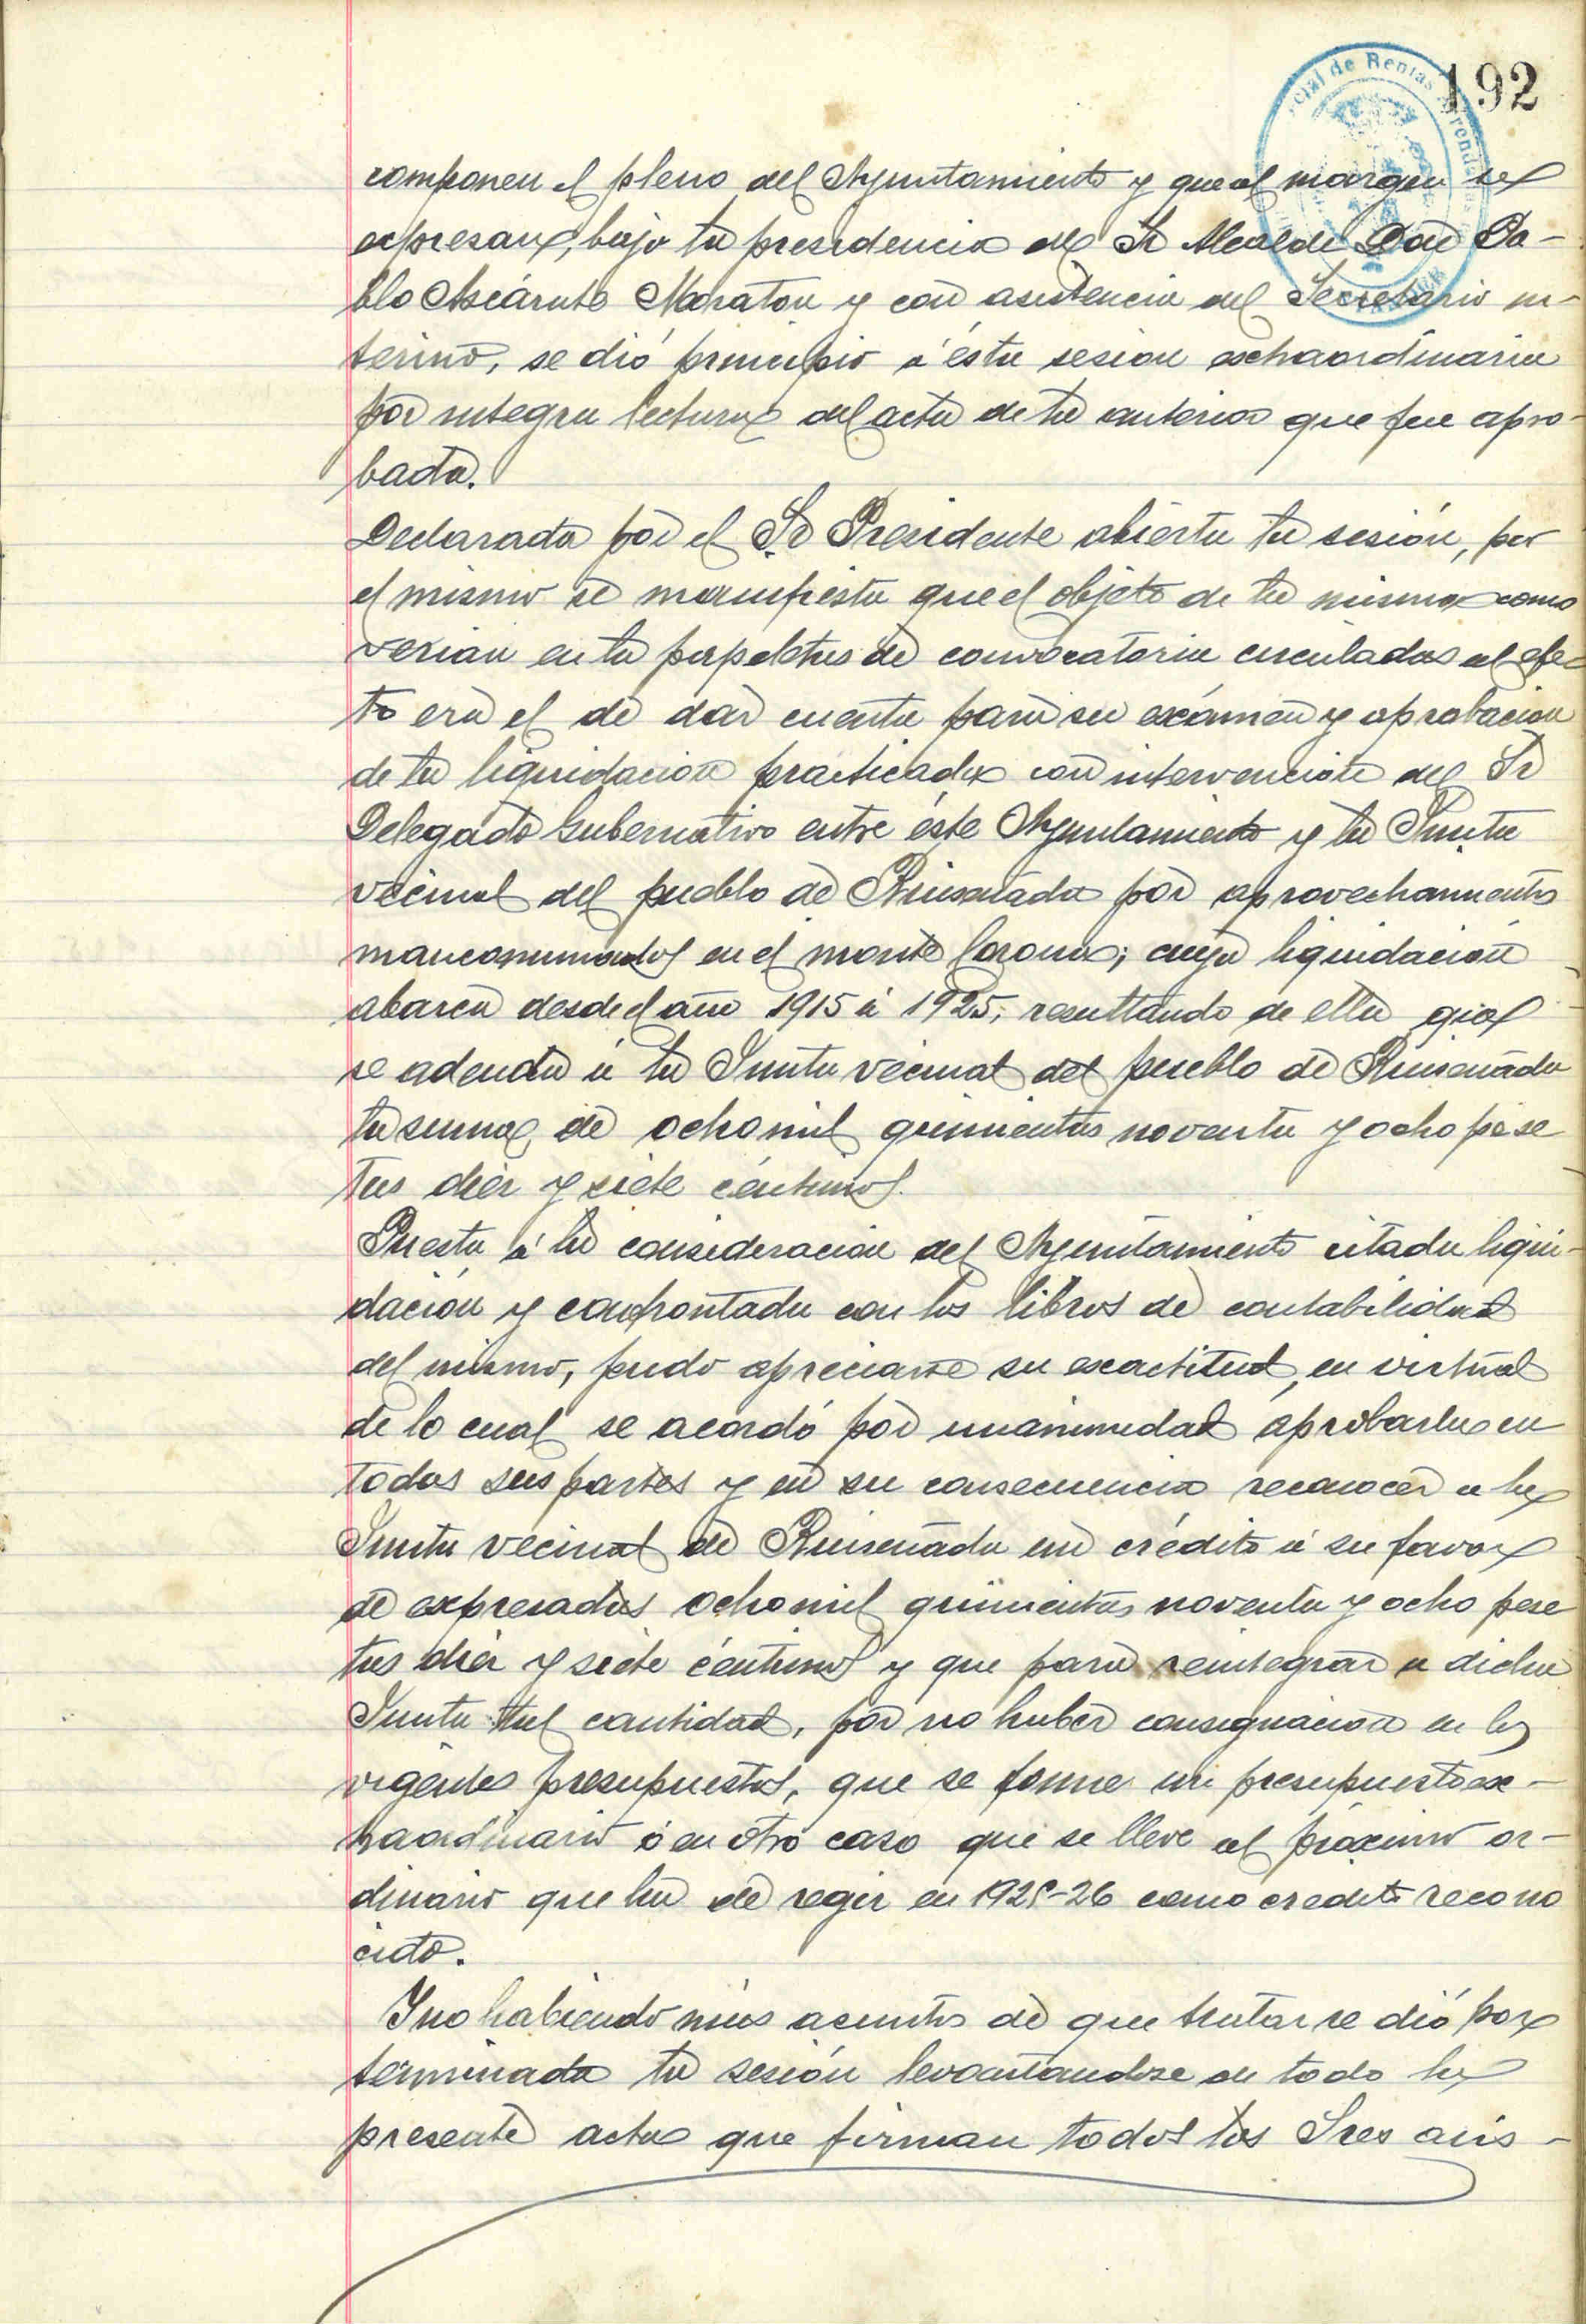 192
cial de Rentas
componen el pleno del Ayuntamiento y que al margen se
expresan, bajo la presidencia del Sr Alcalde Don Pa-
blo Ascárate Maraton y con asistencia del Secretario in-
terino, se dió principio á ésta sesion extraordinaria
por integra lectura del acta de la anterior que fue apro-
bada.
Declarada por el Sr Presidente abierta la sesión, por
el mismo se manifiesta que el objeto de la misma como
verian en la papeletas de convocatoria circuladas al efec
to era el de dar cuenta para su exámen y aprobacion
de la liquidacion practicada con intervención del Sr
Delegado Gubernativo entre éste Ayuntamiento y la Junta
vecinal del pueblo de Ruiseñada por aprovechamientos
mancomunados en el monte Corona; cuya liquidación
abarca desde el año 1915 á 1925, resultando de ella que
se adeuda á la Junta vecinal del pueblo de Ruiseñada
la suma de ocho mil quinientas noventa y ocho pese
tas diez y siete céntimos.
Puesta á la consideración del Ayuntamiento citada liqui-
dación y confrontada con los libros de contabilidad
del mismo, pudo apreciarse su exactitud, en virtud
de lo cual se acordó por unanimidad aprobarla en
todas sus partes y en su consecuencia reconocer a la
Junta vecinal de Ruiseñada un crédito á su favor
de expresadas ocho mil quinientas noventa y ocho pese
tas diez y siete céntimos y que para reintegrar a dicha
Junta tal cantidad, por no haber consignacion en los
vigentes presupuestos, que se forme un presupuesto ex-
traordinario ó en otro caso que se lleve al próximo or-
dinario que ha de regir en 1925-26 como credito recono
cido.
Y no habiendo más asuntos de que tratar se dió por
terminada la sesión levantandose de todo la
presente acta que firman todos los Sres asis-